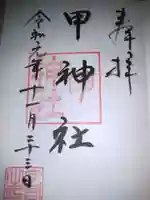 奉拝
甲神社
令和元年十一月二十三日